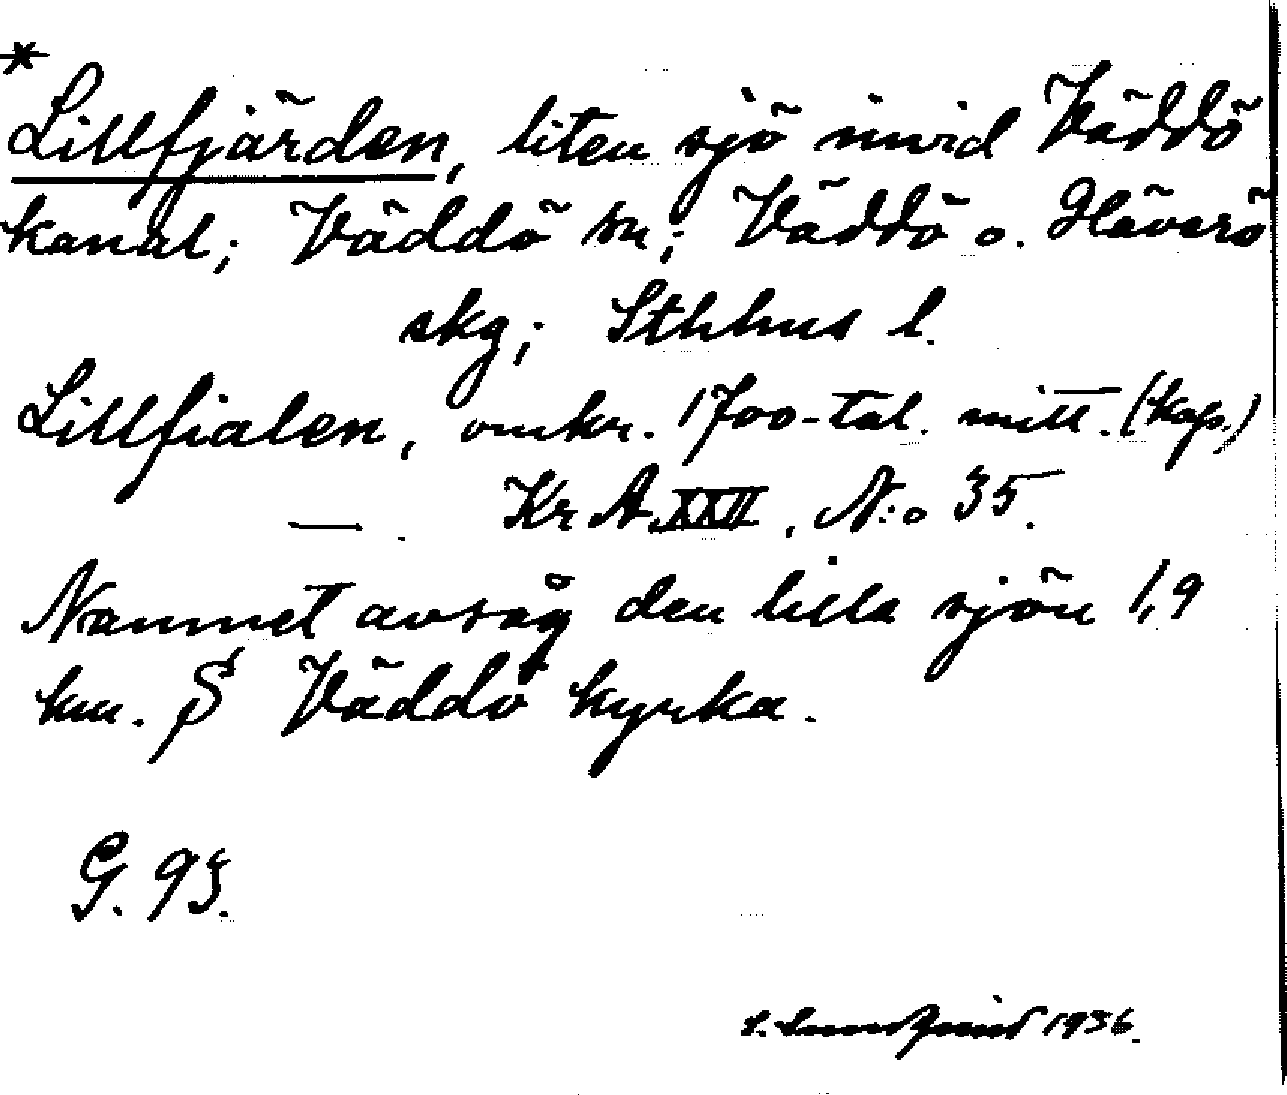 *
Lillfjärden, liten sjö invid Väddö
kanal; Väddö sn; Väddö o. Häverö
skg; Sthlms l.
Lillfialen, omkr. 1700-tal. mitt. (kop.)
— . Kr A. XXII, N:o 35.
Namnet avsåg den lilla sjön 1,9
km. S Väddö kyrka.
G. 93.
S. Lundqvist 1936.